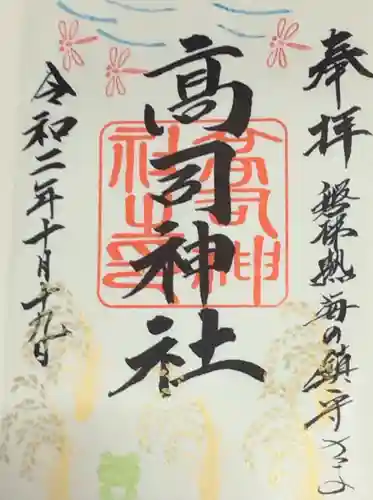 奉拝 磐梯熱海の鎮守さま
高司神社
令和二年十月十九日